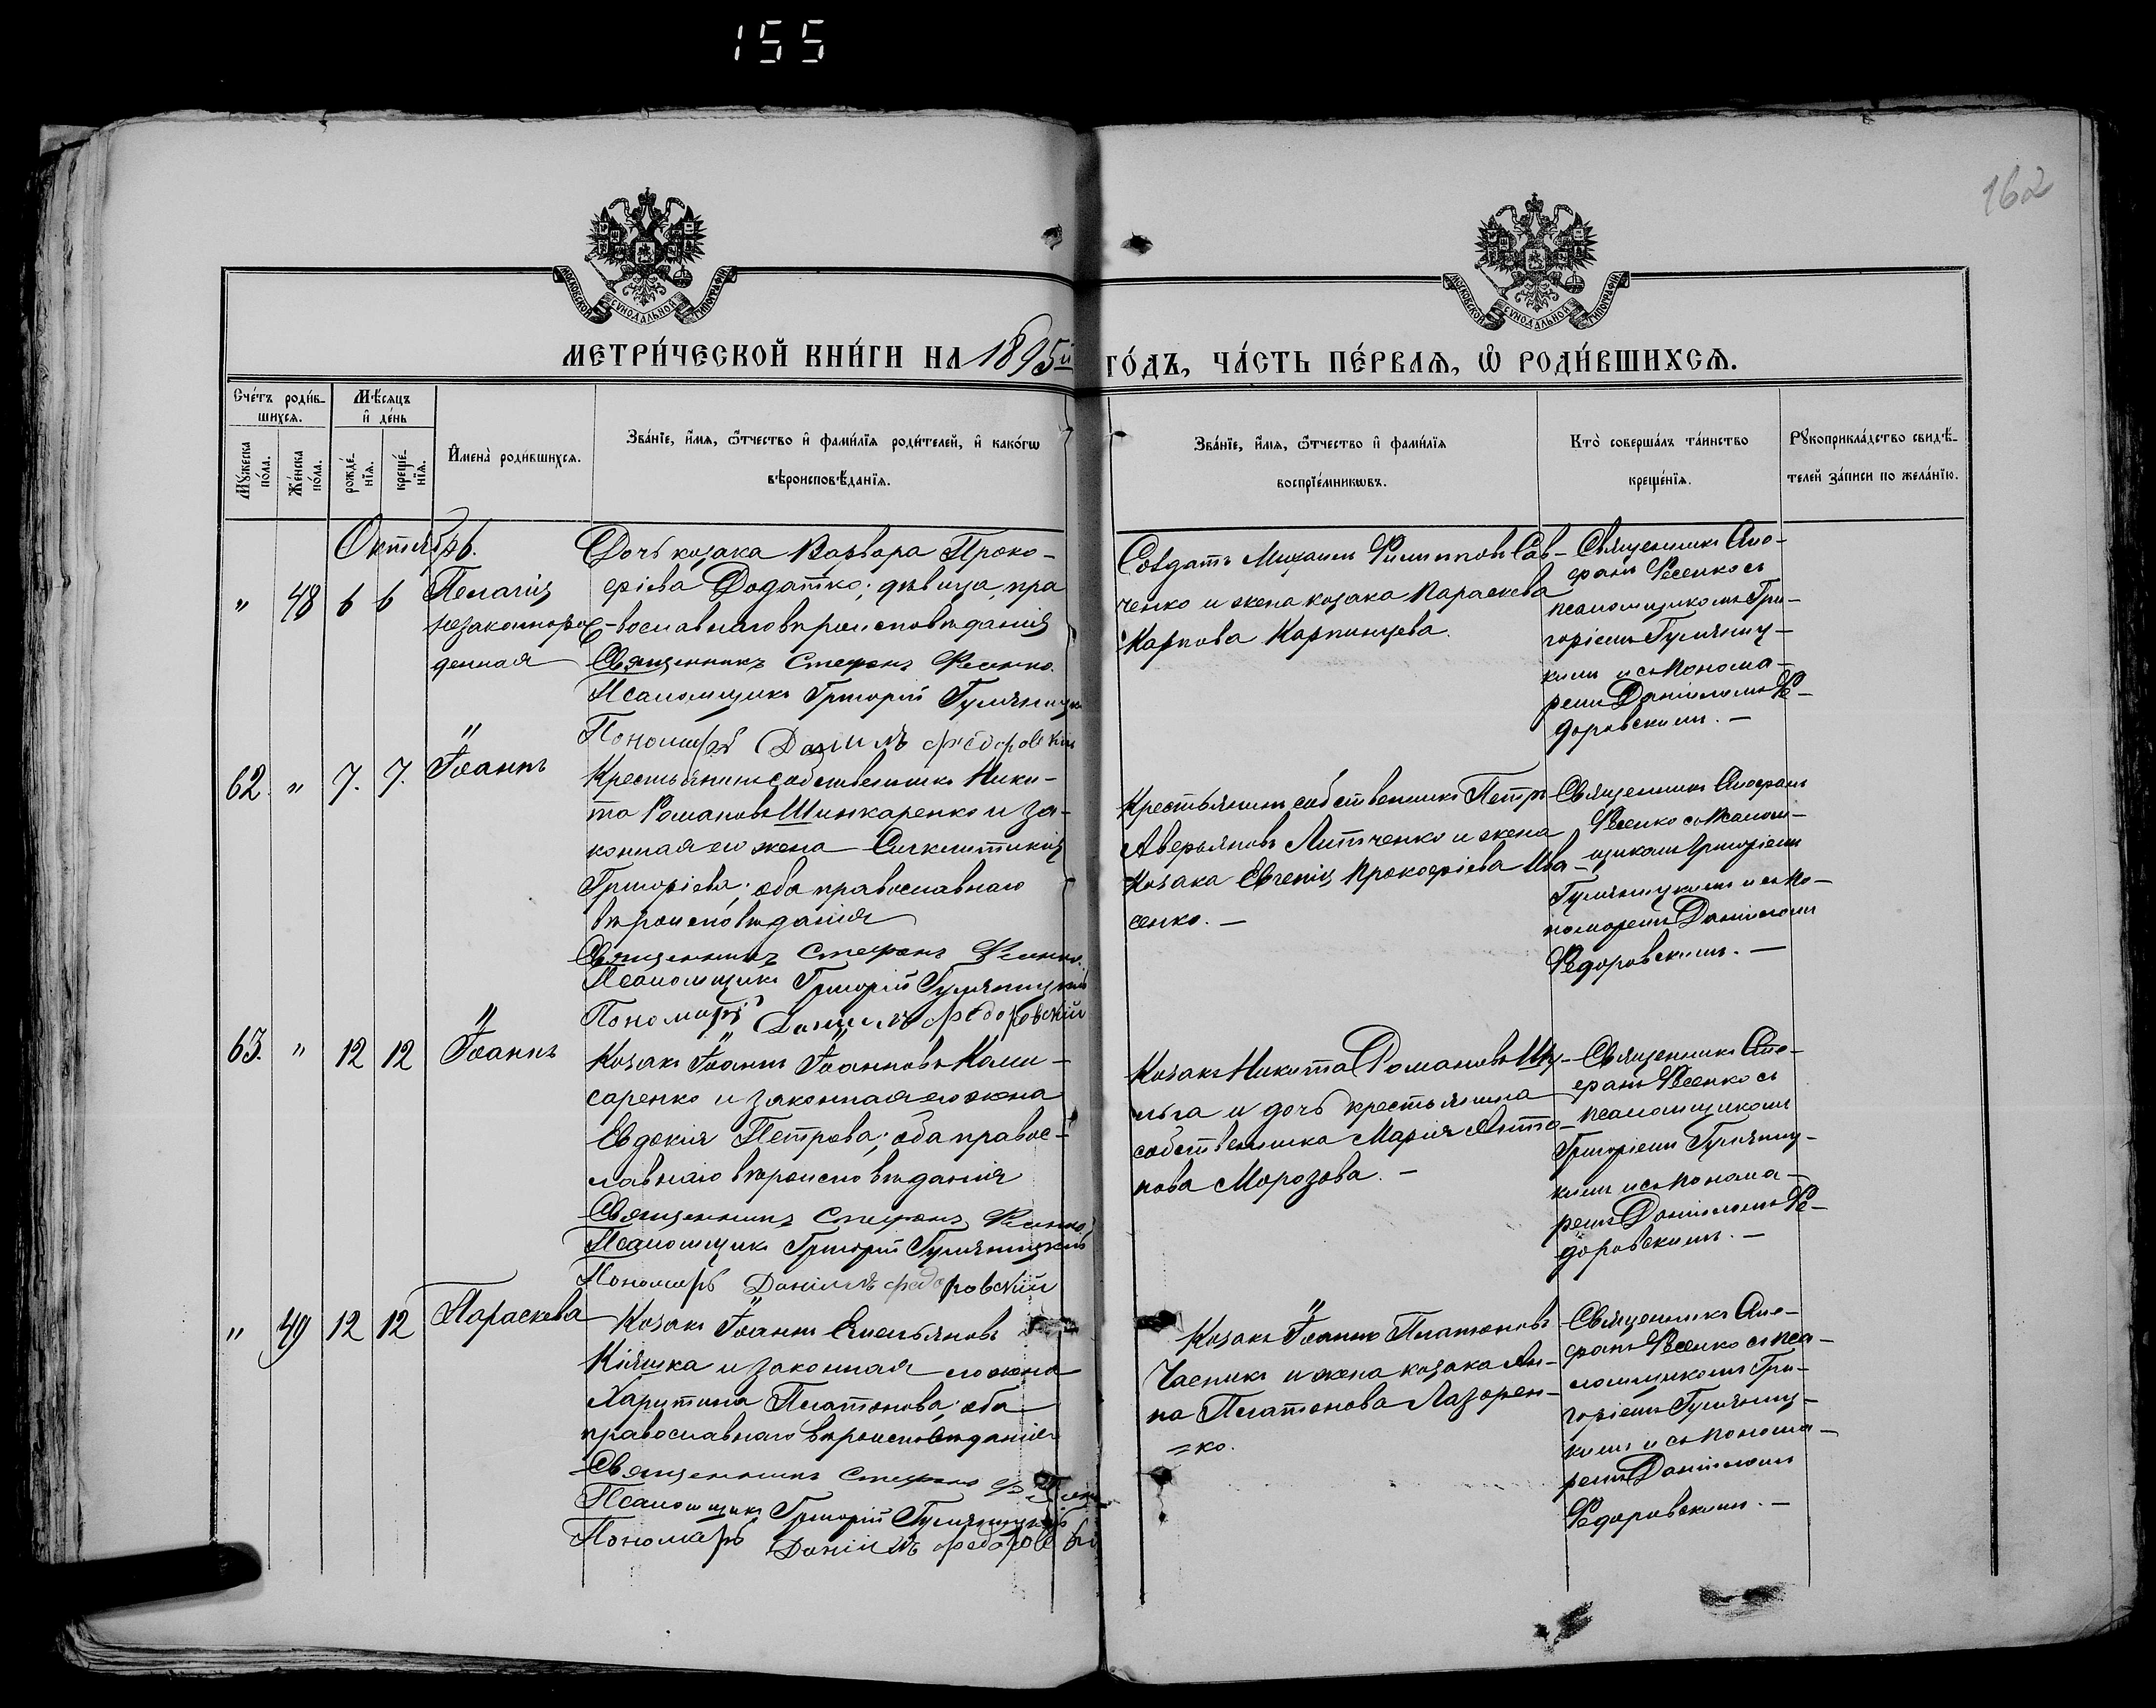 155
162
МОСКОВСКОЙ СѴНОДАЛЬНОЙ ТИПОГРАФІИ
МОСКОВСКОЙ СѴНОДАЛЬНОЙ ТИПОГРАФІИ
МЕТРИ́ЧЕСКОЙ КНИ́ГИ НА 1895й ГО́ДЪ, ЧА́СТЬ ПЕ́РВАѦ, Ѡ҆ РОДИ́ВШИХСѦ.
Сче́тъ роди́в-
шихсѧ.
Мѣ́сѧцъ
и҆ де́нь
Мꙋ́жеска
по́ла.
Же́нска
по́ла.
рожде́-
нїѧ.
креще́-
нїѧ.
И҆мена̀ роди́вшихсѧ.
Зва́нїе, и҆́мѧ, ѻ҆́тчество и҆ фами́лїѧ роди́телей, и҆ како́гѡ
вѣроисповѣ́данїѧ.
Зва́нїе, и҆́мѧ, ѻ҆́тчество и҆ фами́лїѧ
воспрїе́мникѡвъ.
Кто̀ соверша́лъ та́инство
креще́нїѧ.
Рꙋкоприкла́дство свидѣ́-
телей за́писи по жела́нїю.
Октябрь.
" 48 6 6
Пелагія
незаконорож-
денная
Дочь козака Варвара Проко-
фіева Додатко; дѣвица, пра
-вославнаго вѣроисповѣданія
Священникъ Стефанъ Фесенко.
Псаломщикъ Григорій Гуляницкій
Пономарь Даніилъ Федоровскій
Солдатъ Михаилъ Филипповъ Сав-
ченко и жена козака Параскева
Карпова Карпинцева.
Священникъ Сте-
фанъ Фесенко съ
псаломщикомъ Гри-
горіемъ Гуляниц-
кимъ и съ понома-
ремъ Даніиломъ Фе-
доровскимъ. —
62. " 7. 7.
Іоаннъ
Крестьянинъ собственникъ Ники-
та Романовъ Шинкаренко и за-
конная его жена Синклитикія
Григоріева; оба православнаго
вѣроисповѣданія
Священникъ Стефанъ Фесенко.
Псаломщикъ Григорій Гуляницкій
Пономарь Даніилъ Федоровскій
Крестьянинъ собственникъ Петръ
Аверьяновъ Литвченко и жена
козака Евгенія Прокофіева Ива-
сенко. —
Священникъ Стефанъ
Фесенко съ псалом-
щикомъ Григоріемъ
Гуляницкимъ и съ по-
номаремъ Даніиломъ
Федоровскимъ. —
63. " 12 12
Іоаннъ
Козакъ Іоаннъ Іоанновъ Коми-
саренко и законная его жена
Евдокія Петрова; оба правос-
лавнаго вѣроисповѣданія
Священникъ Стефанъ Фесенко.
Псаломщикъ Григорій Гуляницкій
Пономарь Даніилъ Федоровскій
Козакъ Никита Романовъ Шу-
льга и дочь крестьянина
собственника Марія Анто-
нова Морозова. —
Священникъ Сте-
фанъ Фесенко съ
псаломщикомъ
Григоріемъ Гуляниц-
кимъ и съ понома-
ремъ Даніиломъ Фе-
доровскимъ. —
" 49 12 12
Параскева
Козакъ Іоаннъ Емельяновъ
Кіяшка и законная его жена
Харитина Платонова; оба
православнаго вѣроисповѣданія
Священникъ Стефанъ Фесенко
Псаломщикъ Григорій Гуляницкій
Пономарь Даніилъ Федоровскій
Козакъ Іоаннъ Платоновъ
Часникъ и жена козака Ан-
на Платонова Лазорен-
=ко.
Священникъ Сте-
фанъ Фесенко съ пса-
ломщикомъ Гри-
горіемъ Гуляниц-
кимъ и съ понома-
ремъ Даніиломъ
Федоровскимъ. —